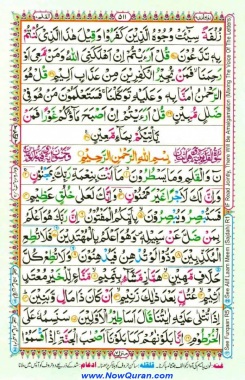 زُلْفَةً سِيْٓـَٔتْ وُجُوْهُ الَّذِيْنَ كَفَرُوْا وَقِيْلَ هٰذَا الَّذِيْ كُنْتُمْ
بِهٖ تَدَّعُوْنَ قُلْ اَرَءَيْتُمْ اِنْ اَهْلَكَنِيَ اللّٰهُ وَمَنْ مَّعِيَ اَوْ
رَحِمَنَا فَمَنْ يُّجِيْرُ الْكٰفِرِيْنَ مِنْ عَذَابٍ اَلِيْمٍ قُلْ هُوَ
الرَّحْمٰنُ اٰمَنَّا بِهٖ وَعَلَيْهِ تَوَكَّلْنَا فَسَتَعْلَمُوْنَ مَنْ هُوَ فِيْ
ضَلٰلٍ مُّبِيْنٍ قُلْ اَرَءَيْتُمْ اِنْ اَصْبَحَ مَآؤُكُمْ غَوْرًا فَمَنْ
يَّاْتِيْكُمْ بِمَآءٍ مَّعِيْنٍ
بِسْمِ اللّٰهِ الرَّحْمٰنِ الرَّحِيْمِ
نٓ وَالْقَلَمِ وَمَا يَسْطُرُوْنَ مَآ اَنْتَ بِنِعْمَةِ رَبِّكَ بِمَجْنُوْنٍ
وَاِنَّ لَكَ لَاَجْرًا غَيْرَ مَمْنُوْنٍ وَاِنَّكَ لَعَلٰى خُلُقٍ عَظِيْمٍ
فَسَتُبْصِرُ وَيُبْصِرُوْنَ بِاَيِّكُمُ الْمَفْتُوْنُ اِنَّ رَبَّكَ هُوَ اَعْلَمُ
بِمَنْ ضَلَّ عَنْ سَبِيْلِهٖ وَهُوَ اَعْلَمُ بِالْمُهْتَدِيْنَ فَلَا تُطِعِ
الْمُكَذِّبِيْنَ وَدُّوْا لَوْ تُدْهِنُ فَيُدْهِنُوْنَ وَلَا تُطِعْ كُلَّ
حَلَّافٍ مَّهِيْنٍ هَمَّازٍ مَّشَّآءٍ بِنَمِيْمٍ مَّنَّاعٍ لِّلْخَيْرِ مُعْتَدٍ
اَثِيْمٍ عُتُلٍّ بَعْدَ ذٰلِكَ زَنِيْمٍ اَنْ كَانَ ذَا مَالٍ وَّبَنِيْنَ
اِذَا تُتْلٰى عَلَيْهِ اٰيٰتُنَا قَالَ اَسَاطِيْرُ الْاَوَّلِيْنَ سَنَسِمُهٗ عَلَى
الْخُرْطُوْمِ اِنَّا بَلَوْنٰهُمْ كَمَا بَلَوْنَآ اَصْحٰبَ الْجَنَّةِ اِذْ اَقْسَمُوْا
www.NowQuran.com